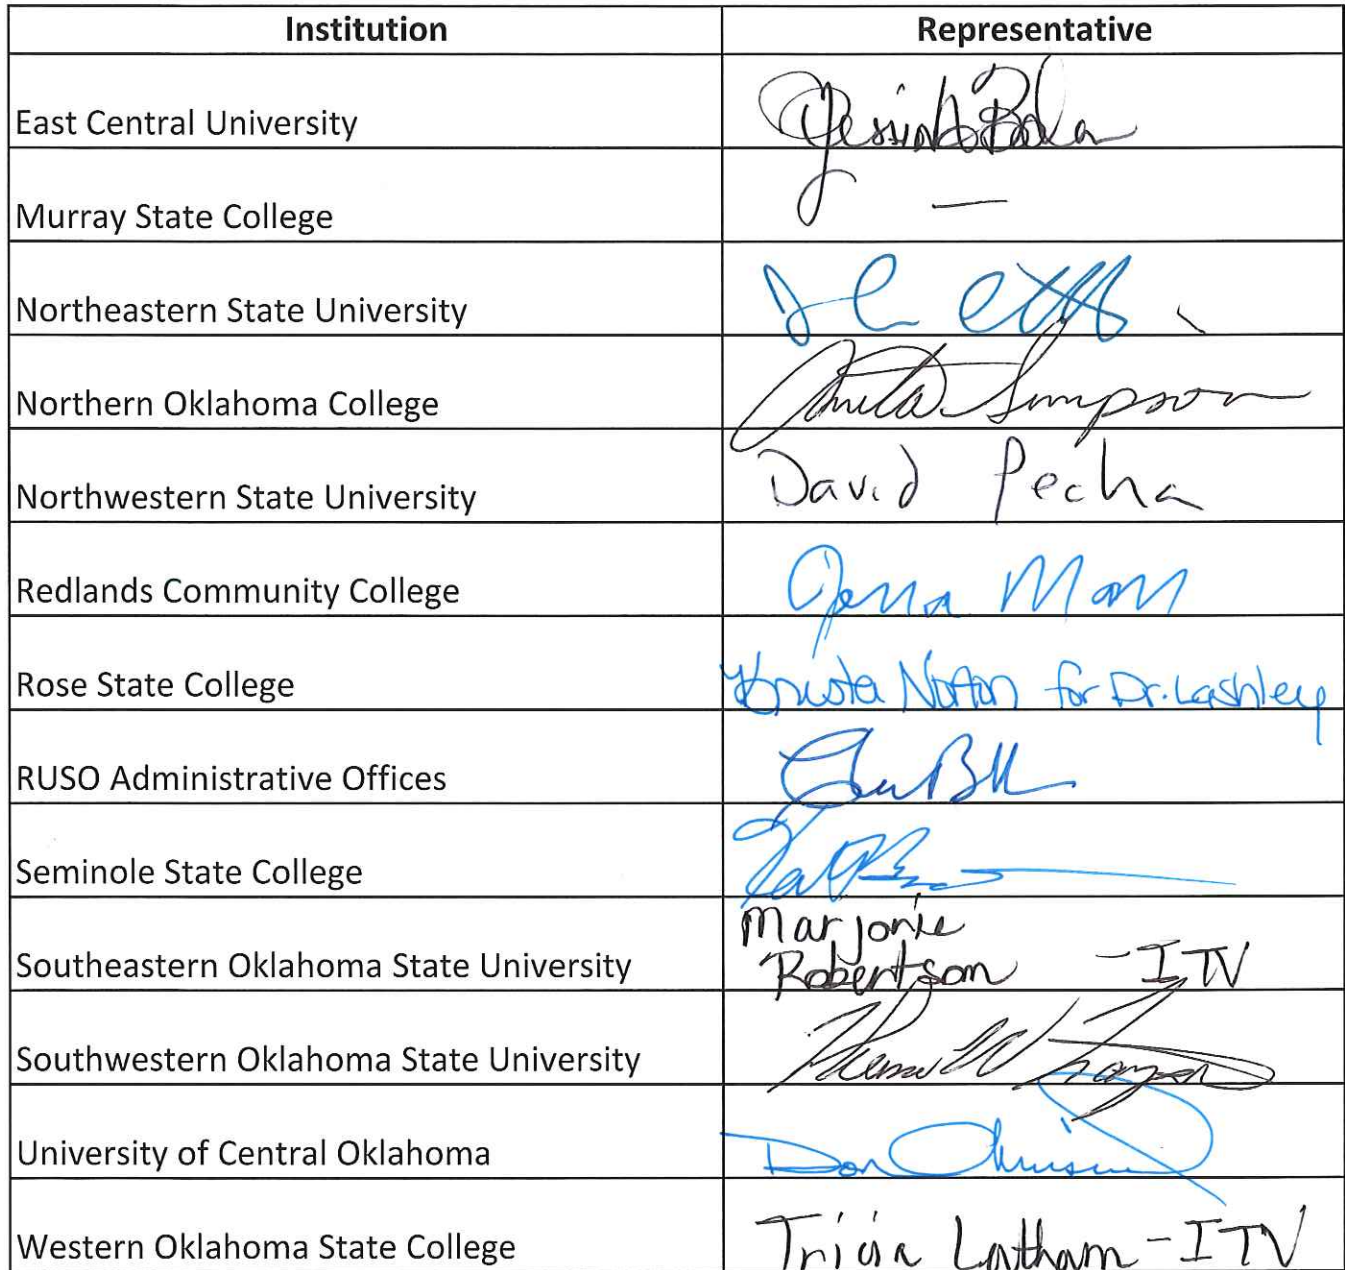 Institution Representative
East Central University
Murray State College —
Northeastern State University
Northern Oklahoma College Anita Simpson
Northwestern State University David Pecha
Redlands Community College Jenna
Rose State College Krista Norton for Dr. Lashley
RUSO Administrative Offices
Seminole State College
Marjorie
Southeastern Oklahoma State University Robertson - ITV
Southwestern Oklahoma State University
University of Central Oklahoma Don
Western Oklahoma State College Tricia Latham - ITV